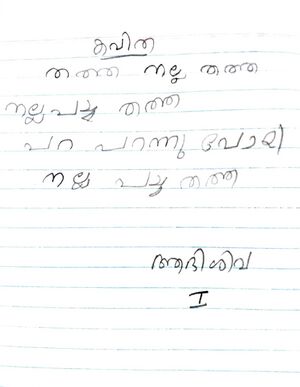 കവിത
തത്ത നല്ല തത്ത
നല്ല പച്ച തത്ത
പറ പറന്നു പോയി
നല്ല പച്ച തത്ത
ആദിശിവ
I